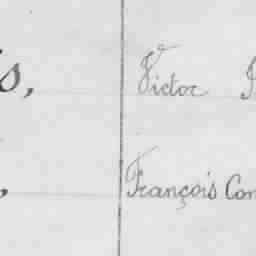 s, Victor
, François Con